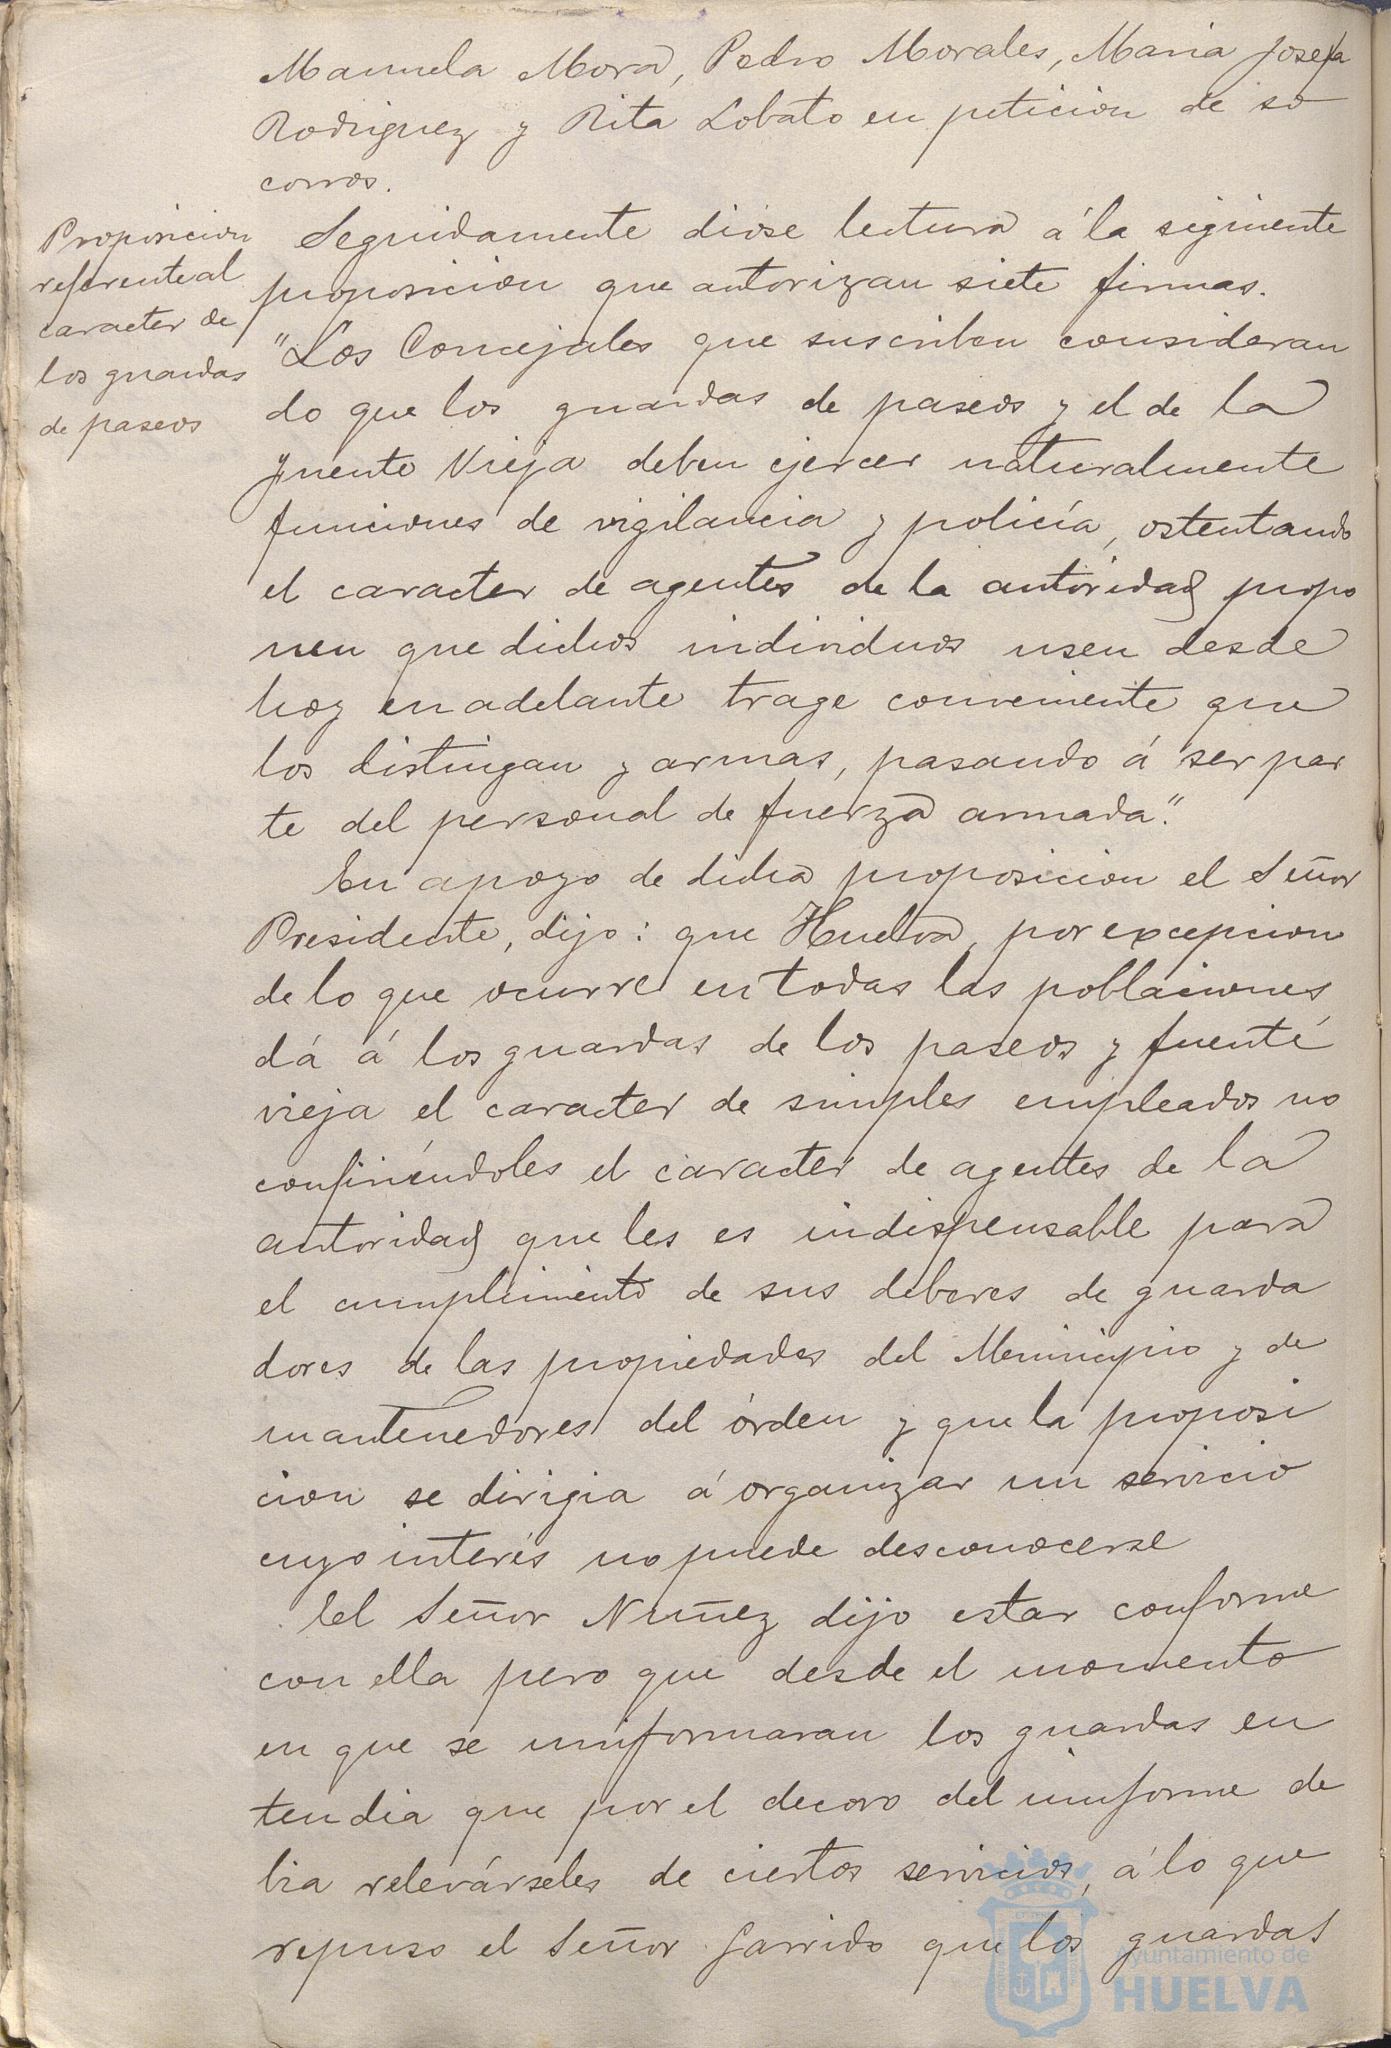 Manuela Mora, Pedro Morales, Maria Josefa
Rodriguez y Rita Lobato en peticion de so
corros.
Proposicion
referente al
caracter de
los guardas
de paseos
Seguidamente dióse lectura á la siguiente
proposicion que autorizan siete firmas.
"Los Concejales que suscriben consideran
do que los guardas de paseos y el de la
fuente Vieja deben ejercer naturalmente
funciones de vigilancia y policía, ostentando
el caracter de agentes de la autoridad propo
nen que dichos individuos usen desde
hoy en adelante trage conveniente que
los distingan y armas, pasando á ser par
te del personal de fuerza armada."
En apoyo de dicha proposicion el Señor
Presidente, dijo: que Huelva, por excepcion
de lo que ocurre en todas las poblaciones
dá á los guardas de los paseos y fuente
vieja el caracter de simples empleados no
confiriéndoles el caracter de agentes de la
autoridad que les es indispensable para
el cumplimiento de sus deberes de guarda
dores de las propiedades del Municipio y de
mantenedores del órden y que la proposi
cion se dirigia á organizar un servicio
cuyo interés no puede desconocerse
El Señor Nuñez dijo estar conforme
con ella pero que desde el momento
en que se uniformaran los guardas en
tendia que por el decoro del uniforme de
bia relevárseles de ciertos servicios, á lo que
repuso el Señor Garrido que los guardas
Ayuntamiento de
HUELVA